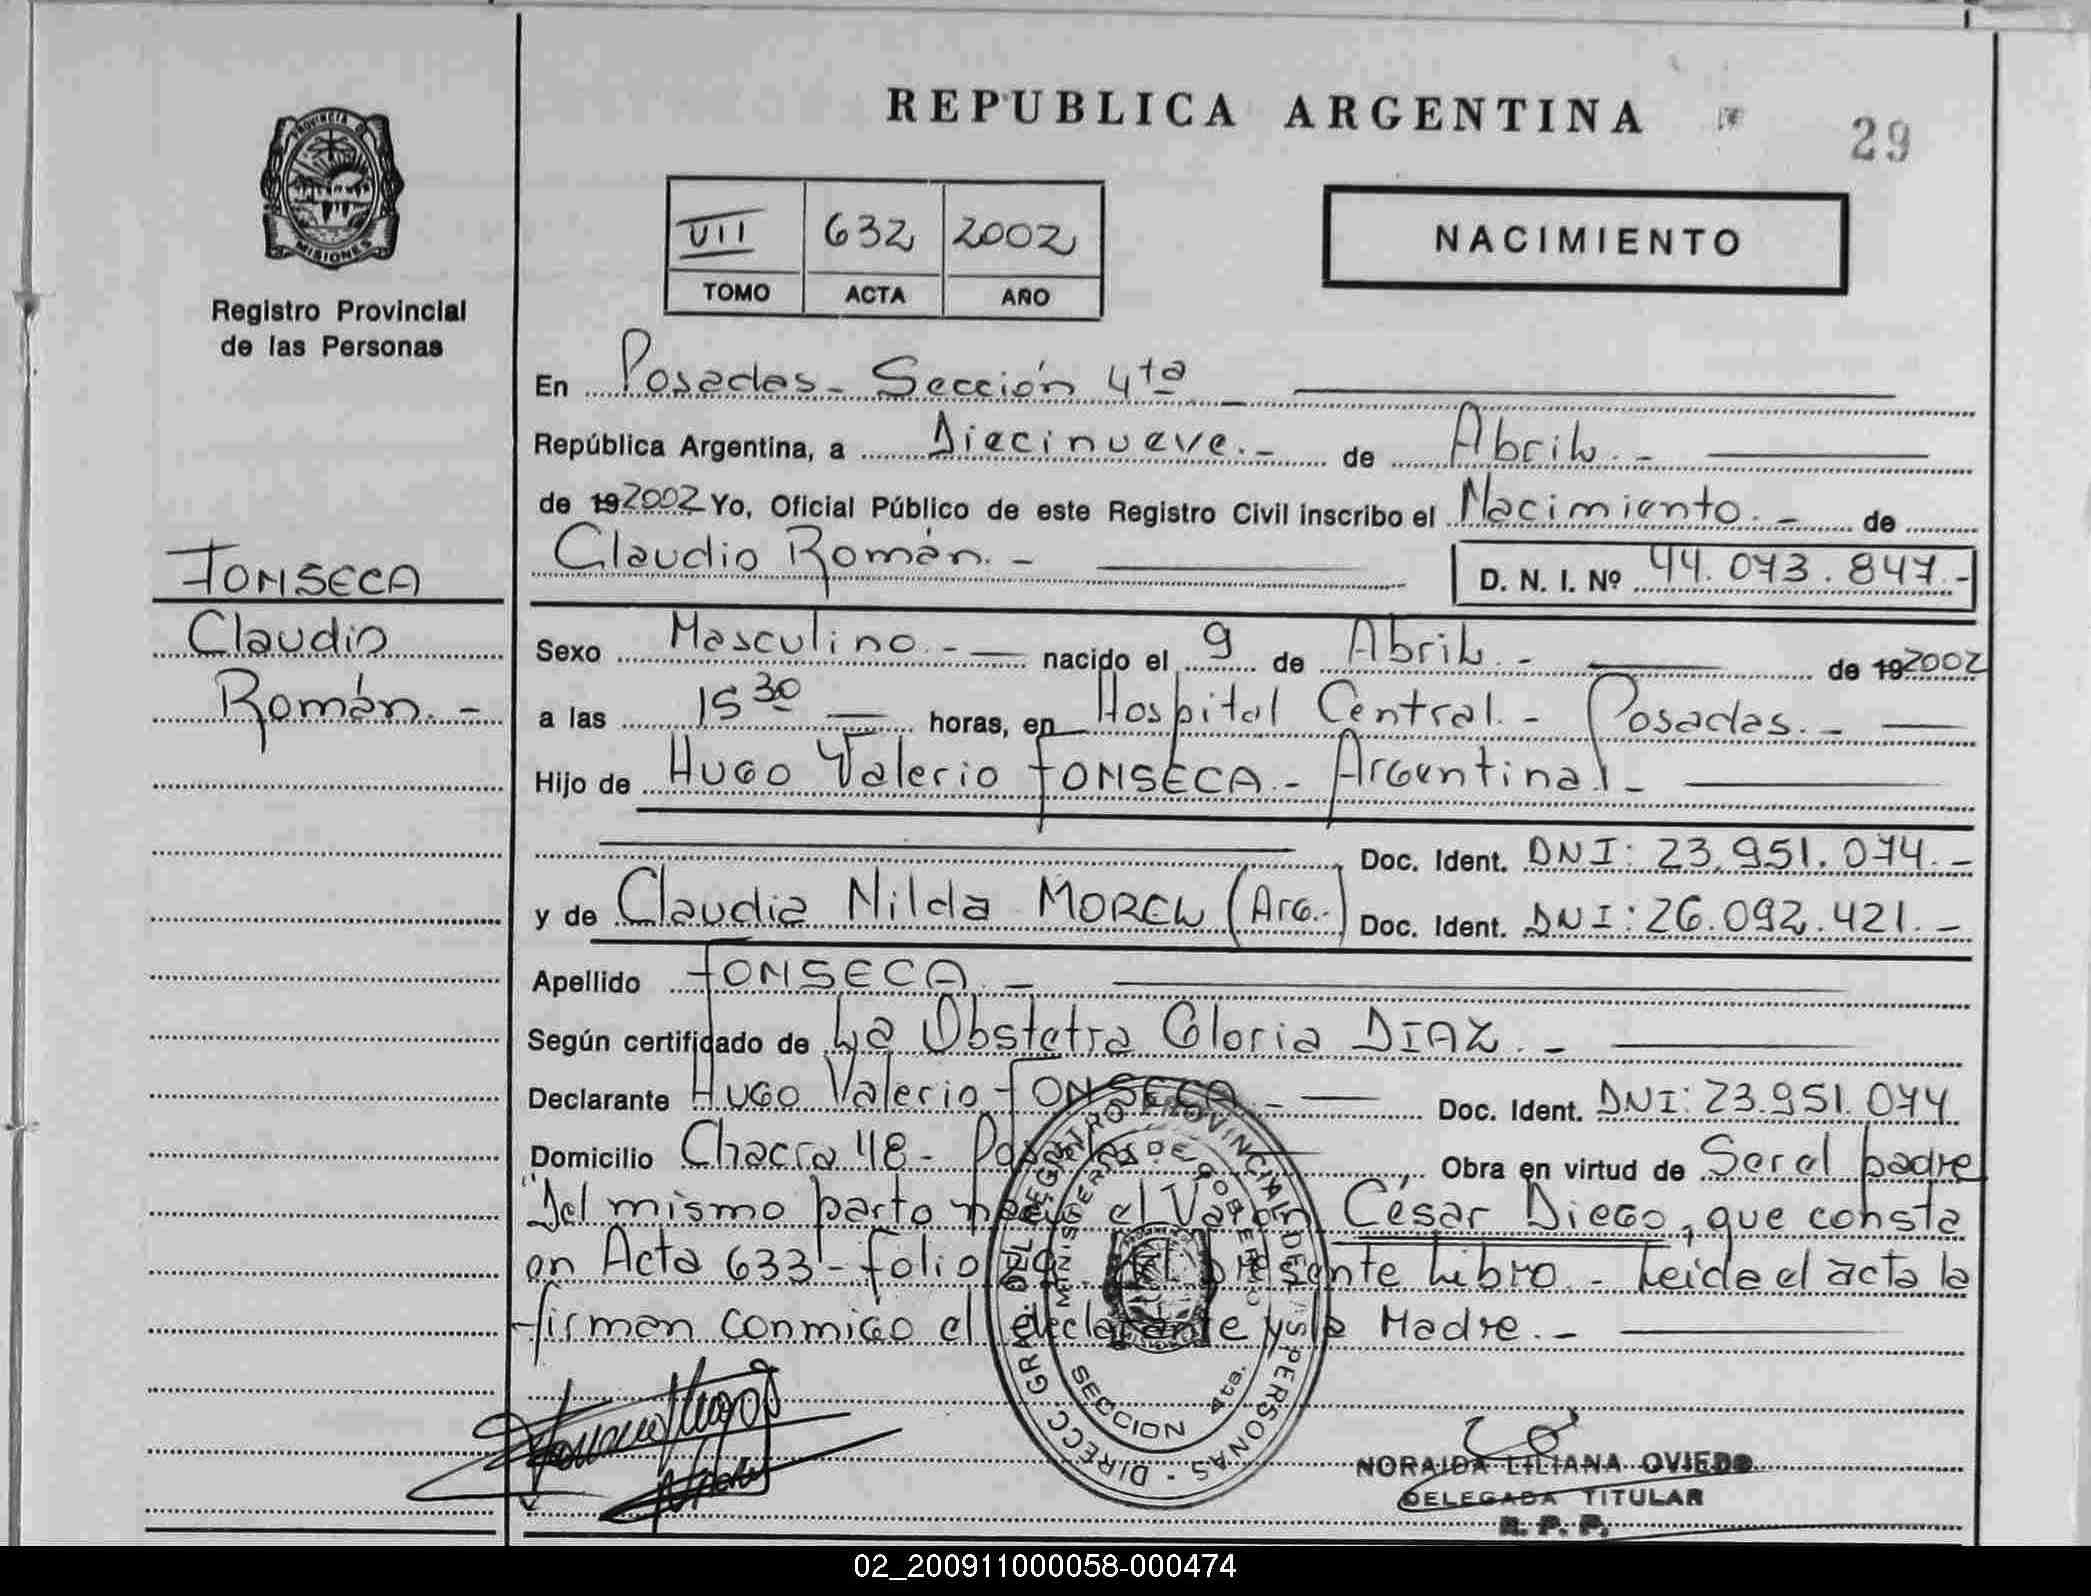 REPUBLICA ARGENTINA
29
PROVINCIA DE
MISIONES
Registro Provincial
de las Personas
VII 632 2002
TOMO ACTA AÑO
NACIMIENTO
En Posadas - Sección 4ta
República Argentina, a Diecinueve.- de Abril.-
de 19 2002 Yo, Oficial Público de este Registro Civil inscribo el Nacimiento.- de
Claudio Román.-
D. N. I. Nº 44.073.847.-
FONSECA
Claudio
Román.-
Sexo Masculino.- nacido el 9 de Abril.- de 19 2002
a las 15 30 horas, en Hospital Central.- Posadas.-
Hijo de Hugo Valerio FONSECA.- Argentina.-
Doc. Ident. DNI: 23.951.074.-
y de Claudia Nilda MOREL (Arg.-) Doc. Ident. DNI: 26.092.421.-
Apellido FONSECA.-
Según certificado de La Obstetra Gloria DIAZ.-
Declarante Hugo Valerio FONSECA.- Doc. Ident. DNI: 23.951.074
Domicilio Chacra 48 - Posadas, Obra en virtud de Ser el padre
"Del mismo parto nació el Varón César Diego, que consta
en Acta 633 - folio del presente Libro.- Leída el acta la
firman conmigo el declarante y la Madre.-
DIRECC. GRAL. DEL REGISTRO PROVINCIAL DE LAS PERSONAS
MINISTERIO DE GOBIERNO
SECCION 4ta.
NORAIDA LILIANA OVIEDO
DELEGADA TITULAR
R. P. P.
02_200911000058-000474